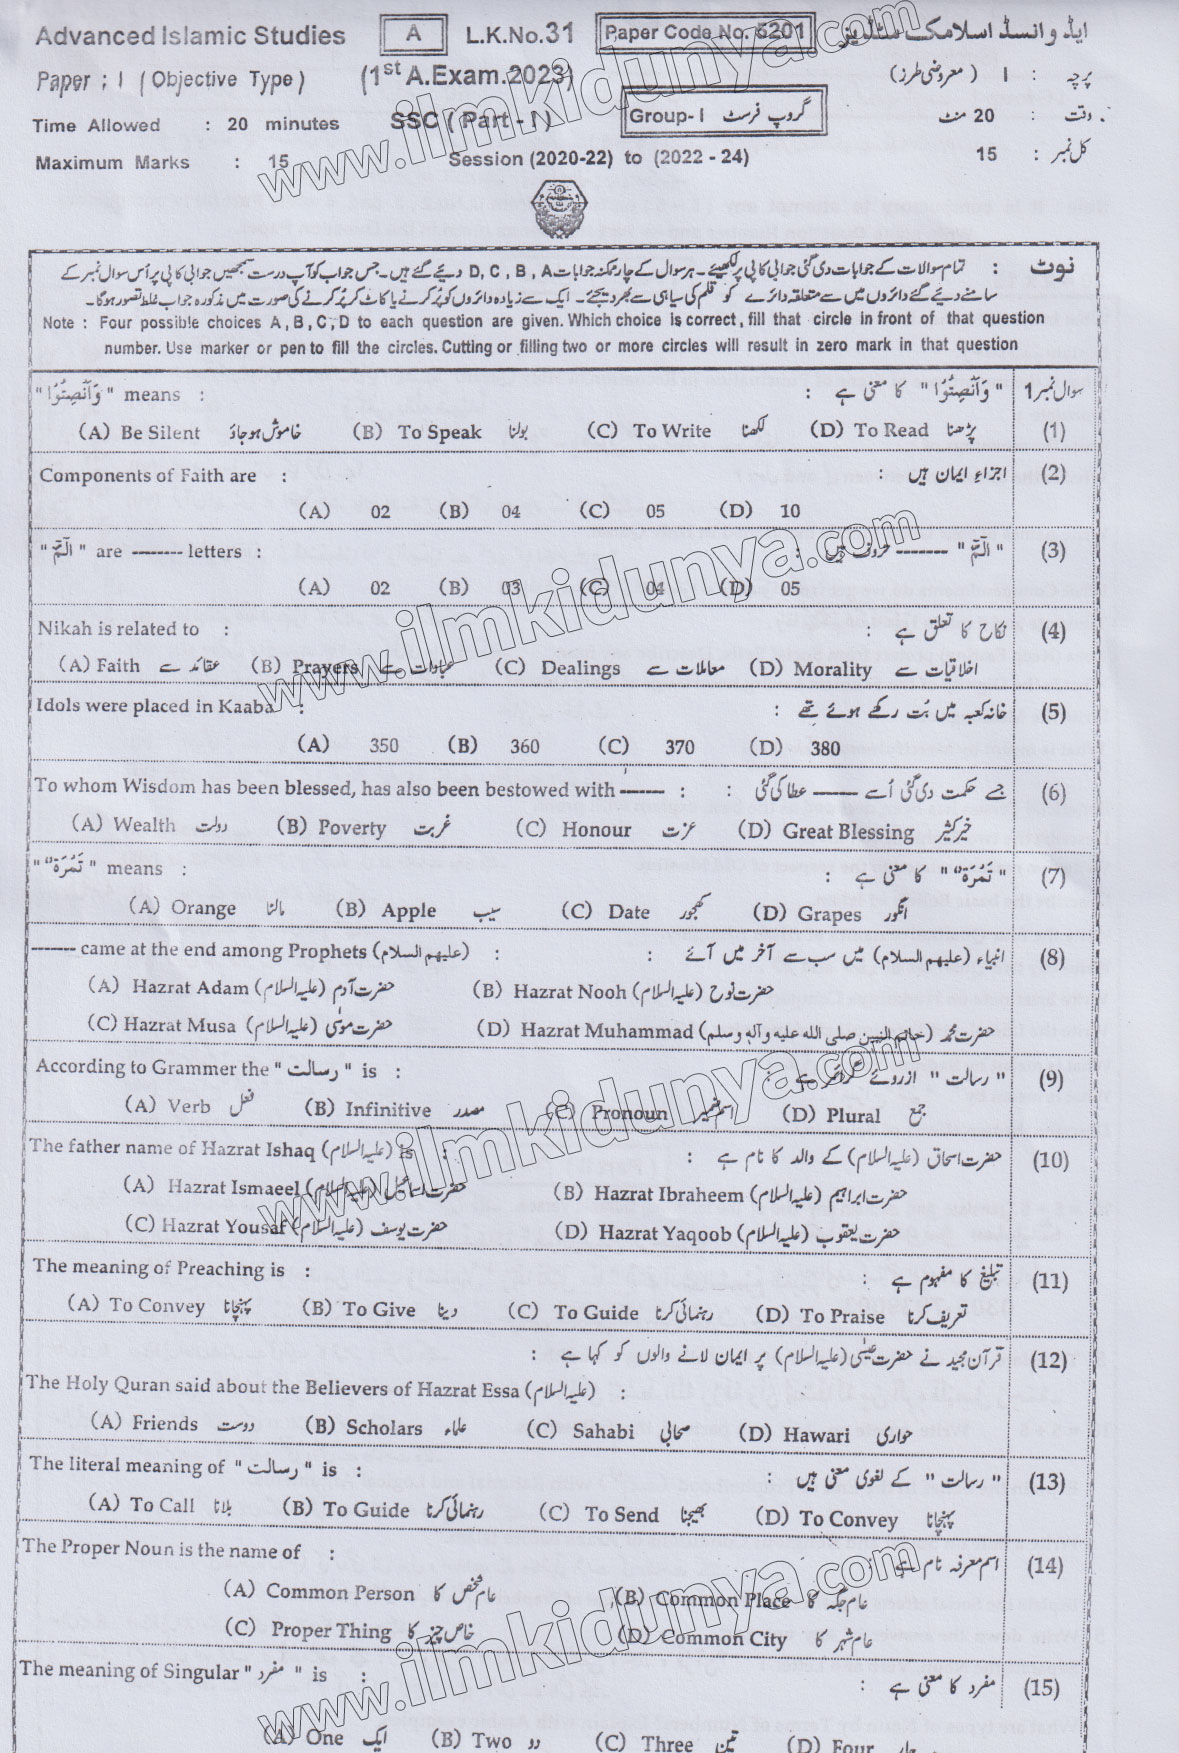 Advanced Islamic Studies A L.K.No.31 Paper Code No. 5201 ایڈوانسڈ اسلامک سٹڈیز
Paper : I (Objective Type) (1st A.Exam.2023) پرچہ : I (معروضی طرز)
Time Allowed : 20 minutes SSC (Part - I) Group- I گروپ فرسٹ وقت : 20 منٹ
Maximum Marks : 15 Session (2020-22) to (2022 - 24) کل نمبر : 15
نوٹ : تمام سوالات کے جوابات دی گئی جوابی کاپی پر لکھیئے۔ ہر سوال کے چار ممکنہ جوابات D, C, B, A دیئے گئے ہیں۔ جس جواب کو آپ درست سمجھیں جوابی کاپی پر اُس سوال نمبر کے
سامنے دیئے گئے دائروں میں سے متعلقہ دائرے کو قلم کی سیاہی سے بھر دیجئے۔ ایک سے زیادہ دائروں کو پُر کرنے یا کاٹ کر پُر کرنے کی صورت میں مذکورہ جواب غلط تصور ہوگا۔
Note : Four possible choices A, B, C, D to each question are given. Which choice is correct, fill that circle in front of that question
number. Use marker or pen to fill the circles. Cutting or filling two or more circles will result in zero mark in that question
"وَاَنْصِتُوْا" means : "وَاَنْصِتُوْا" کا معنی ہے : سوال نمبر 1
(A) Be Silent خاموش ہو جاؤ (B) To Speak بولنا (C) To Write لکھنا (D) To Read پڑھنا (1)
Components of Faith are : اجزاءِ ایمان ہیں : (2)
(A) 02 (B) 04 (C) 05 (D) 10
"الٓمّٓ" are ------- letters : "الٓمّٓ" ------- حروف ہیں : (3)
(A) 02 (B) 03 (C) 04 (D) 05
Nikah is related to : نکاح کا تعلق ہے : (4)
(A) Faith عقائد سے (B) Prayers عبادات سے (C) Dealings معاملات سے (D) Morality اخلاقیات سے
Idols were placed in Kaaba : خانہ کعبہ میں بُت رکھے ہوئے تھے : (5)
(A) 350 (B) 360 (C) 370 (D) 380
To whom Wisdom has been blessed, has also been bestowed with ------ : جسے حکمت دی گئی اُسے ------ عطا کی گئی : (6)
(A) Wealth دولت (B) Poverty غربت (C) Honour عزت (D) Great Blessing خیر کثیر
"تَمْرَة" means : "تَمْرَة" کا معنی ہے : (7)
(A) Orange مالٹا (B) Apple سیب (C) Date کھجور (D) Grapes انگور
------- came at the end among Prophets (علیہم السلام) : انبیاء (علیہم السلام) میں سب سے آخر میں آئے : (8)
(A) Hazrat Adam (علیہ السلام) حضرت آدم (علیہ السلام) (B) Hazrat Nooh (علیہ السلام) حضرت نوح (علیہ السلام)
(C) Hazrat Musa (علیہ السلام) حضرت موسٰی (علیہ السلام) (D) Hazrat Muhammad (خاتم النبین صلی الله علیه وآلهٖ وسلم) حضرت محمد
According to Grammer the "رسالت" is : "رسالت" ازروئے گرائمر ہے : (9)
(A) Verb فعل (B) Infinitive مصدر (C) Pronoun اسم ضمیر (D) Plural جمع
The father name of Hazrat Ishaq (علیہ السلام) is : حضرت اسحاق (علیہ السلام) کے والد کا نام ہے : (10)
(A) Hazrat Ismaeel (علیہ السلام) حضرت اسماعیل (B) Hazrat Ibraheem (علیہ السلام) حضرت ابراہیم
(C) Hazrat Yousaf (علیہ السلام) حضرت یوسف (D) Hazrat Yaqoob (علیہ السلام) حضرت یعقوب
The meaning of Preaching is : تبلیغ کا مفہوم ہے : (11)
(A) To Convey پہنچانا (B) To Give دینا (C) To Guide رہنمائی کرنا (D) To Praise تعریف کرنا
قرآن مجید نے حضرت عیسٰی (علیہ السلام) پر ایمان لانے والوں کو کہا ہے : (12)
The Holy Quran said about the Believers of Hazrat Essa (علیہ السلام) :
(A) Friends دوست (B) Scholars علماء (C) Sahabi صحابی (D) Hawari حواری
The literal meaning of "رسالت" is : "رسالت" کے لغوی معنی ہیں : (13)
(A) To Call بلانا (B) To Guide رہنمائی کرنا (C) To Send بھیجنا (D) To Convey پہنچانا
The Proper Noun is the name of : اسم معرفہ نام ہے : (14)
(A) Common Person عام شخص کا (B) Common Place عام جگہ کا
(C) Proper Thing خاص چیز کا (D) Common City عام شہر کا
The meaning of Singular "مفرد" is : مفرد کا معنی ہے : (15)
(A) One ایک (B) Two دو (C) Three تین (D) Four چار
www.ilmkidunya.com
www.ilmkidunya.com
www.ilmkidunya.com
www.ilmkidunya.com